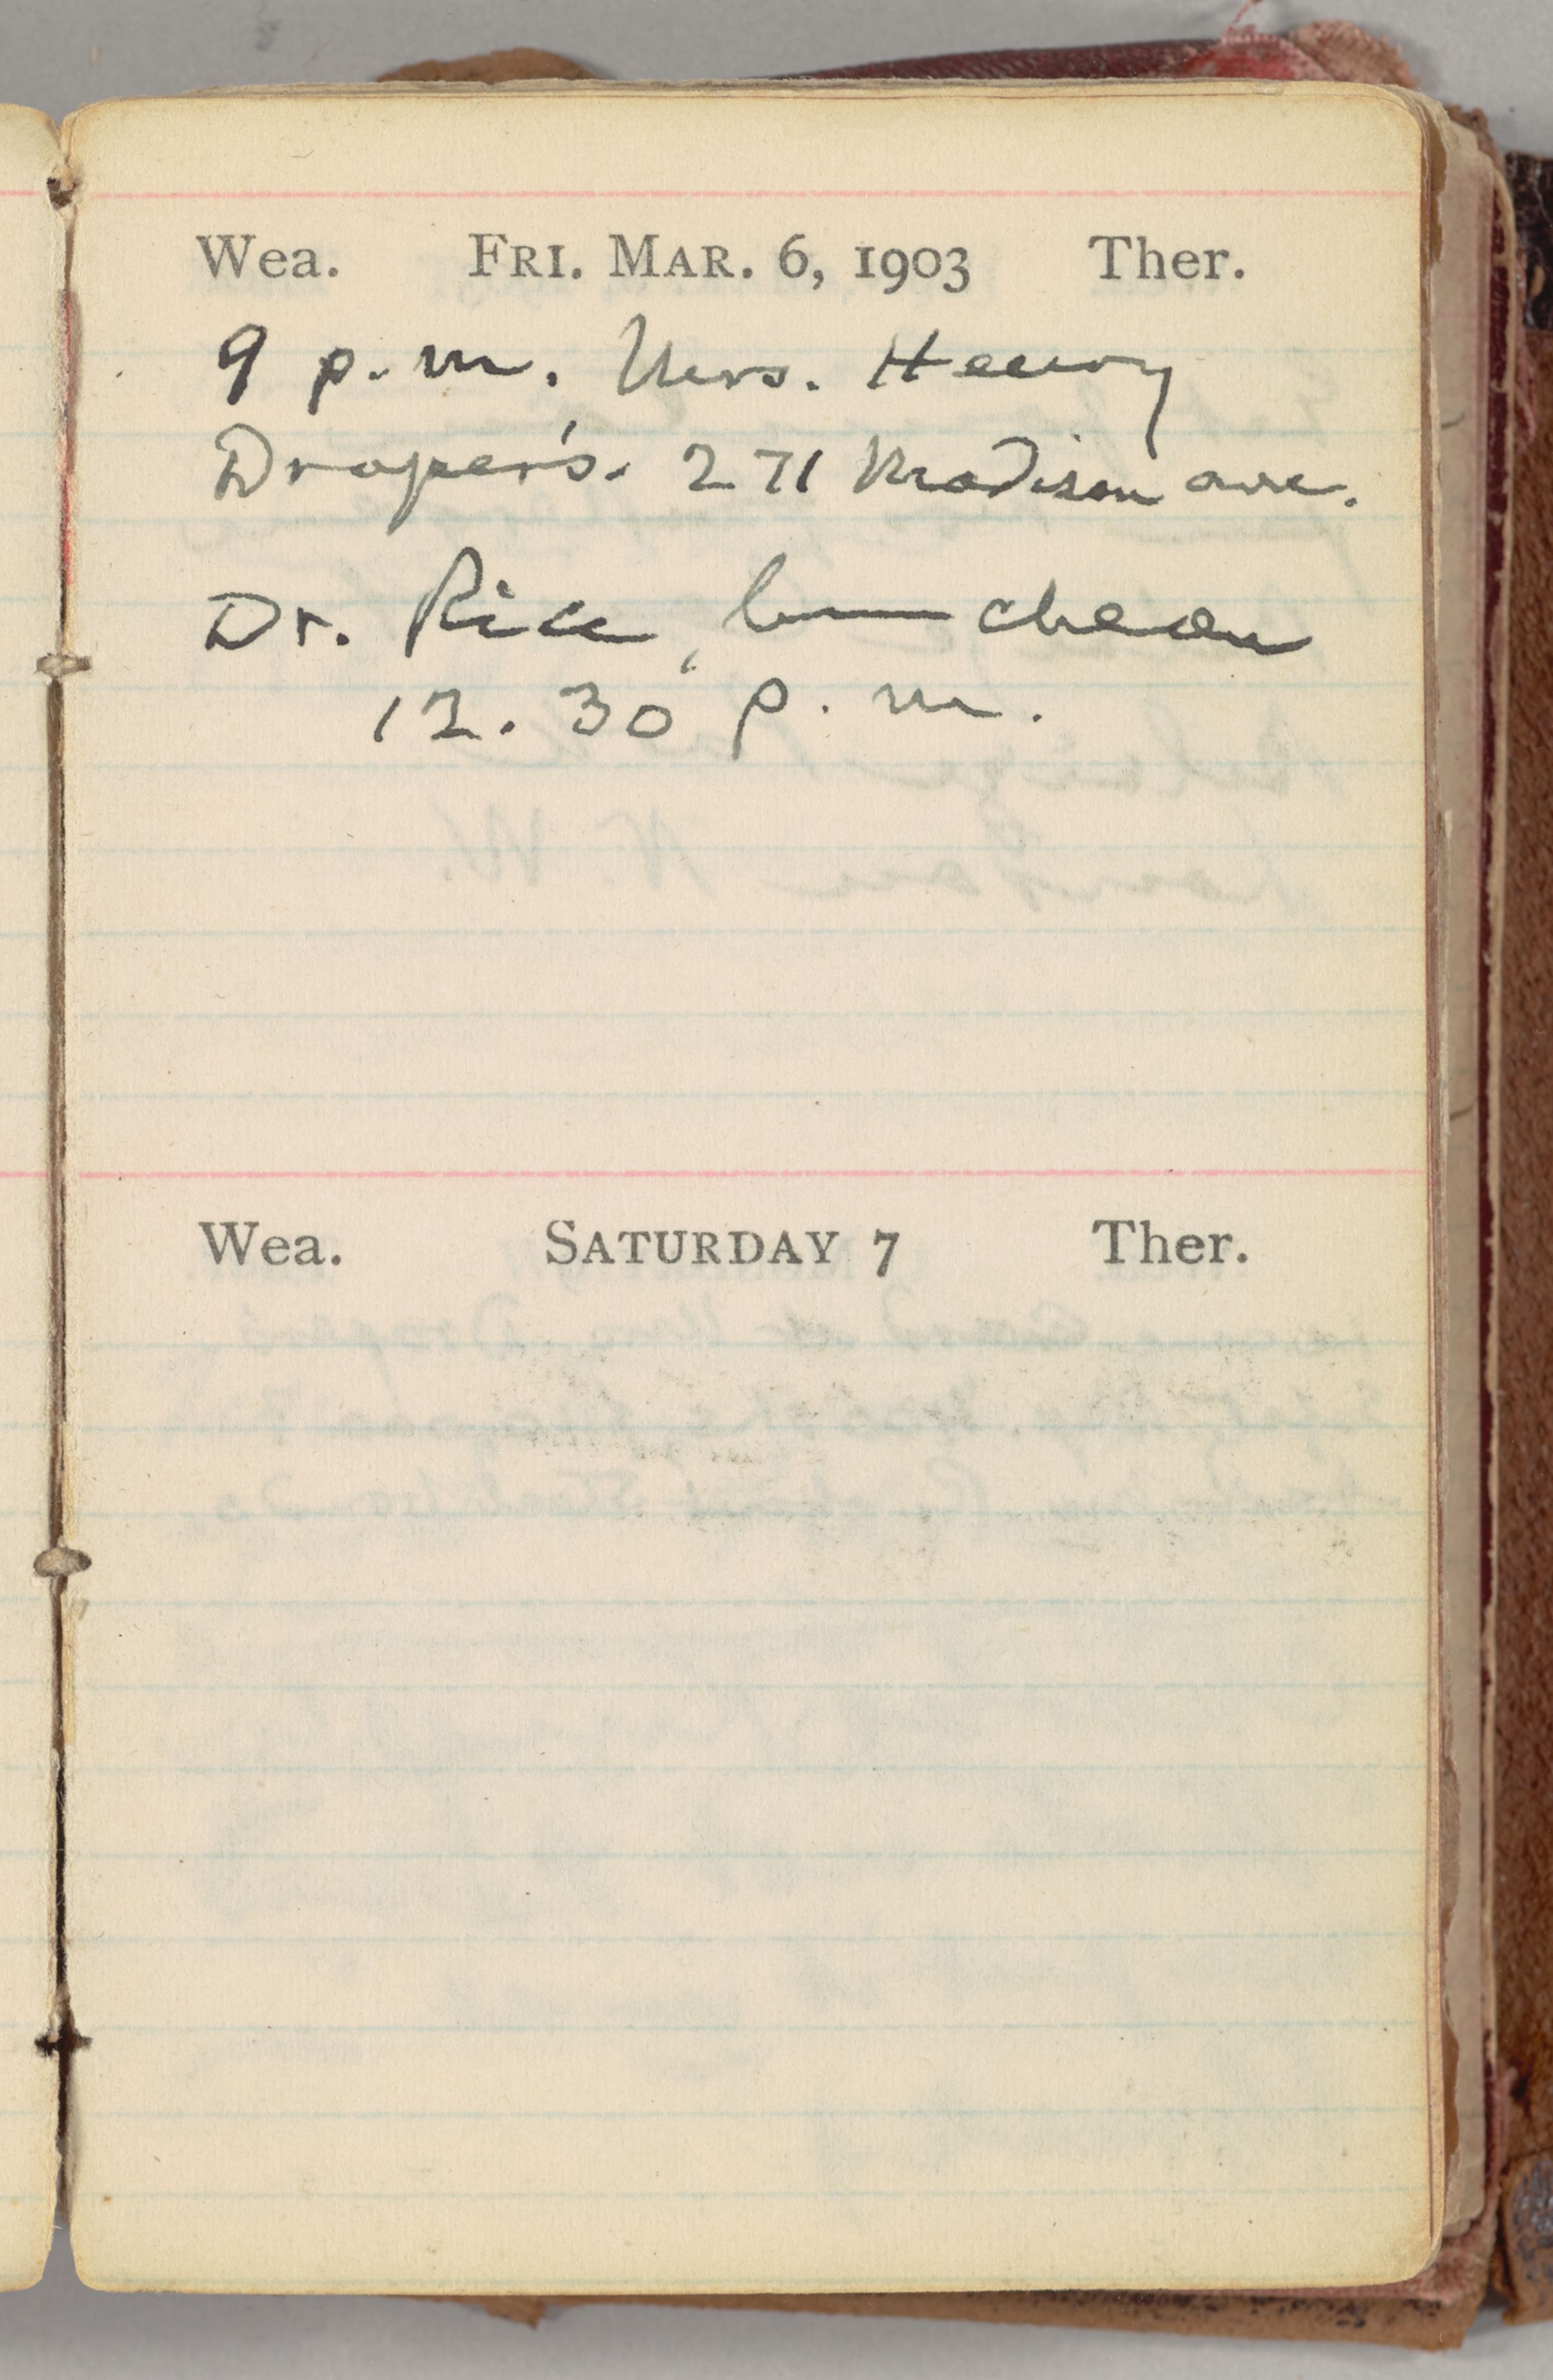 Wea. FRI. MAR. 6, 1903 Ther.
9 p.m. Mrs. Henry
Draper's. 271 Madison ave.
Dr. Rice, luncheon
12.30 p.m.
Wea. SATURDAY 7 Ther.